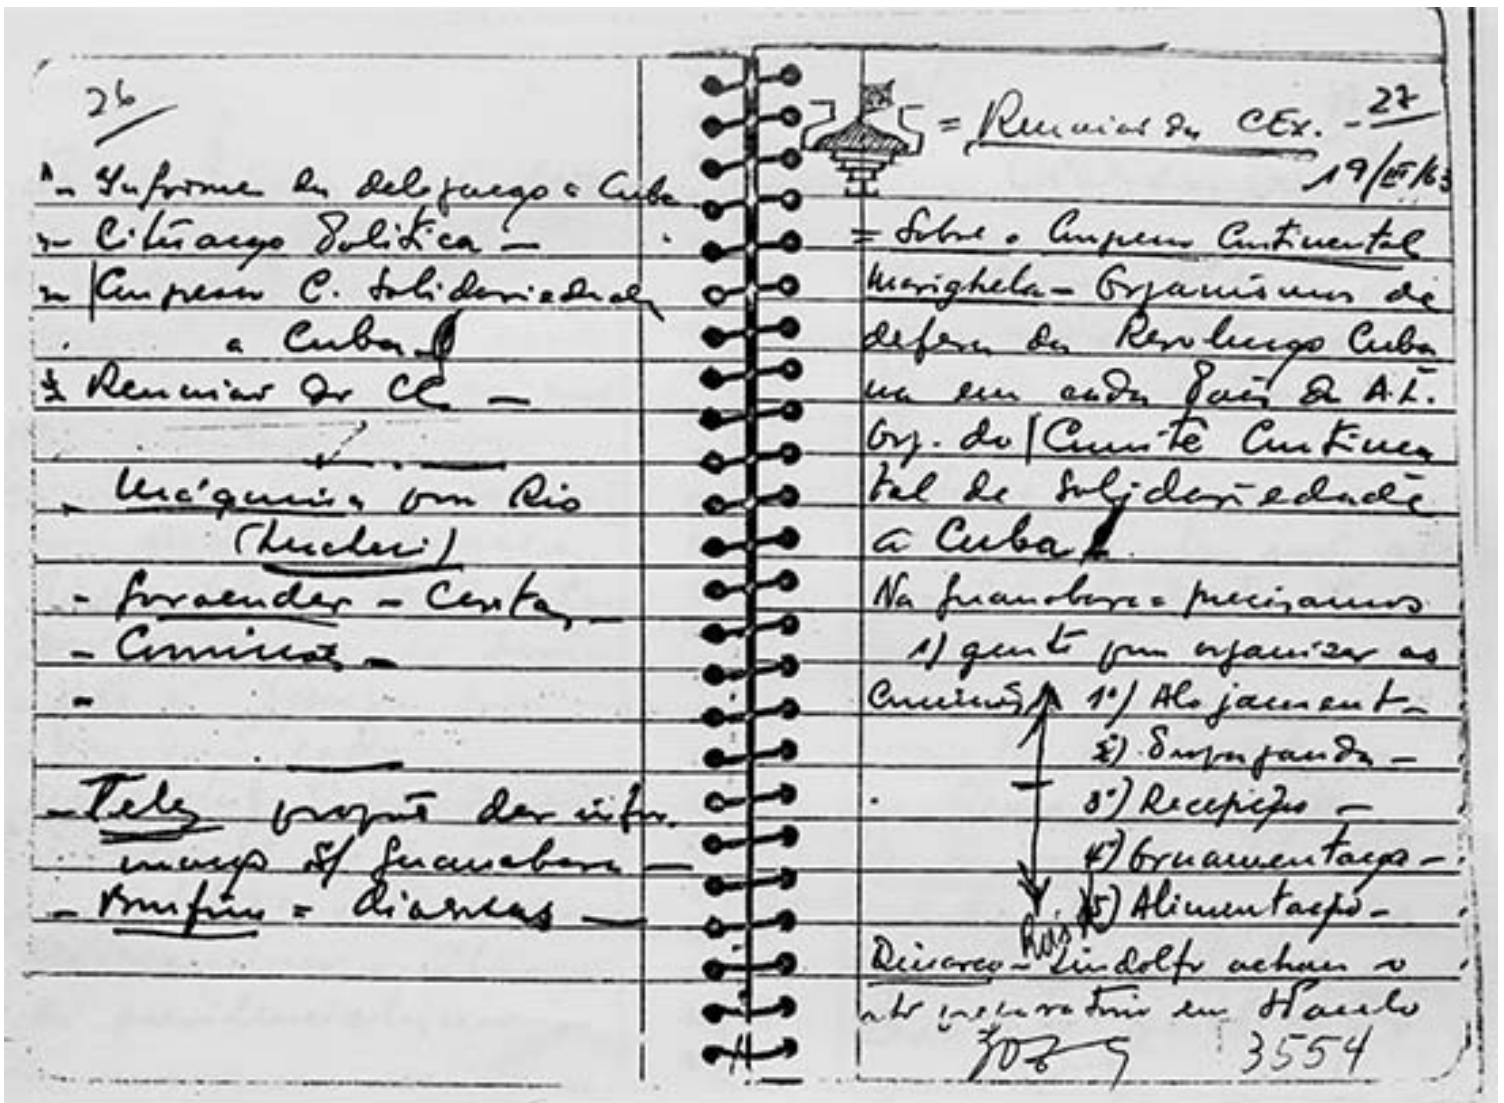 26
1- Informe da delegação a Cuba
2- Cituação Política -
3- Congresso C. Solidariedade
a Cuba
4 Reunião do CC -
Máquina pra Rio
- - Certa,
- Comissão -
-
- Tely dar infor-
mação S/ Guanabara -
- Bonfim = diarias -
= Reunião da CEx. - 27
19/III/63
= Sobre o Congresso Continental
Marighela - Organismos de
defesa da Revolução Cuba
na em cada País da A.L.
Org. do Comitê Continen
tal de Solidariedade
a Cuba
Na Guanabara precisamos
1) gente pra organizar as
Comissões 1º) Alojament-
2º) Propaganda -
3º) Recepição -
4º) Ornamentação -
5) Alimentação -
Dinarco - Lindolfo acham o
ato em S Paulo
3554